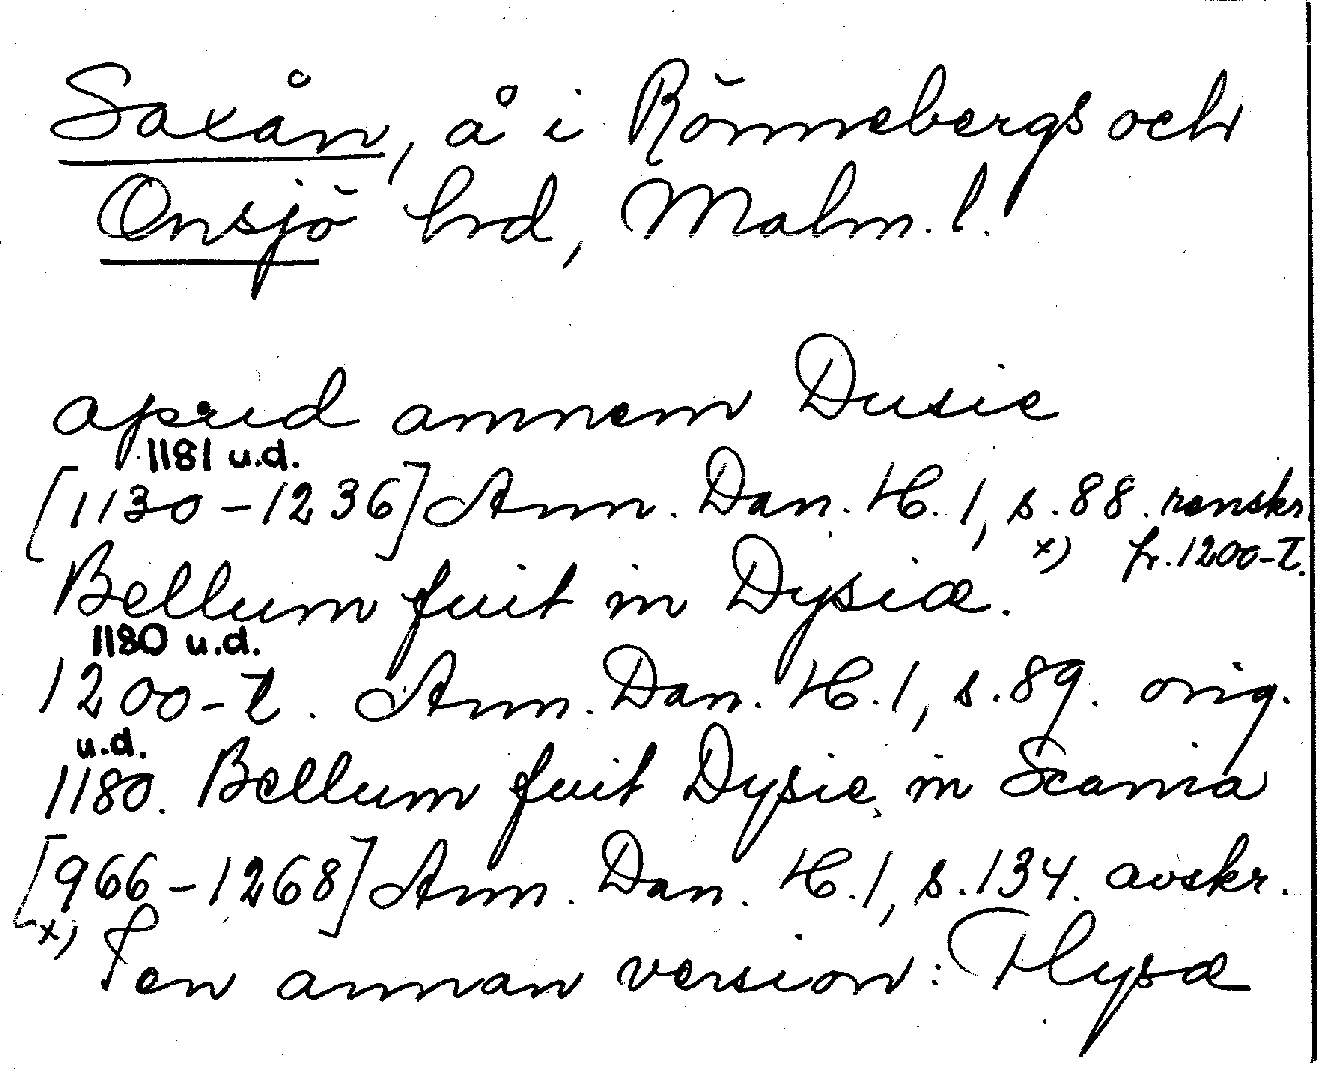 Saxån, å i Rönnebergs och
Onsjö hrd, Malm. l.
apud amnem Dusie
1181 u.d.
[1130-1236] Ann. Dan. H. 1, s. 88. renskr.
x) fr. 1200-t.
Bellum fuit in Dysiæ.
1180 u.d.
1200-t. Ann. Dan. H. 1, s. 89. orig.
u.d.
1180. Bellum fuit Dysie in Scania
[966-1268] Ann. Dan. H. 1, s. 134. avskr.
x) I en annan version: Hysæ